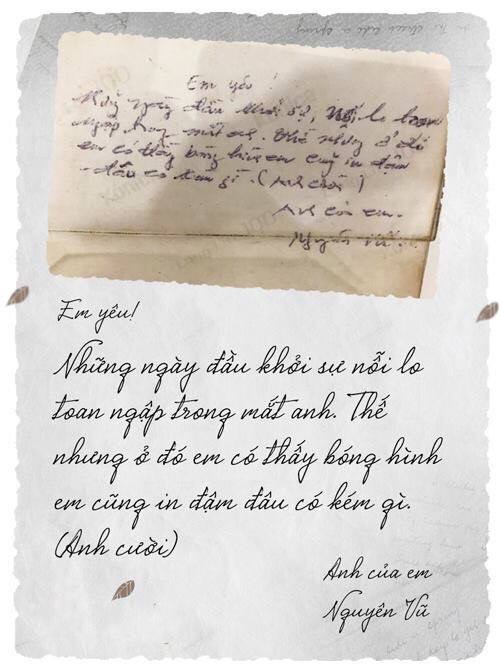 Em yêu!
Những ngày đầu khởi sự, nỗi lo toan
ngập trong mắt anh. Thế nhưng ở đó
em có thấy bóng hình em cũng in đậm
đâu có kém gì. (Anh cười)
Anh của em.
Nguyên Vũ.
Em yêu!
Những ngày đầu khởi sự nỗi lo
toan ngập trong mắt anh. Thế
nhưng ở đó em có thấy bóng hình
em cũng in đậm đâu có kém gì.
(Anh cười)
Anh của em
Nguyên Vũ